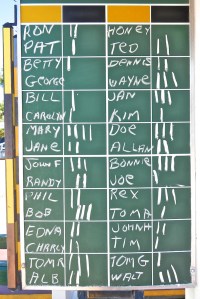 RON HONEY
PAT TED
BETTY DENNIS
GEORGE WAYNE
BILL JAN
CAROLYN KIM
MARY DOE
JANE ALLAN
JOHN F BONNIE
RANDY JOE
PHIL REX
BOB TOMA
EDNA JOHN H
CHARLY TIM
TOM R TOM G
ALB WALT